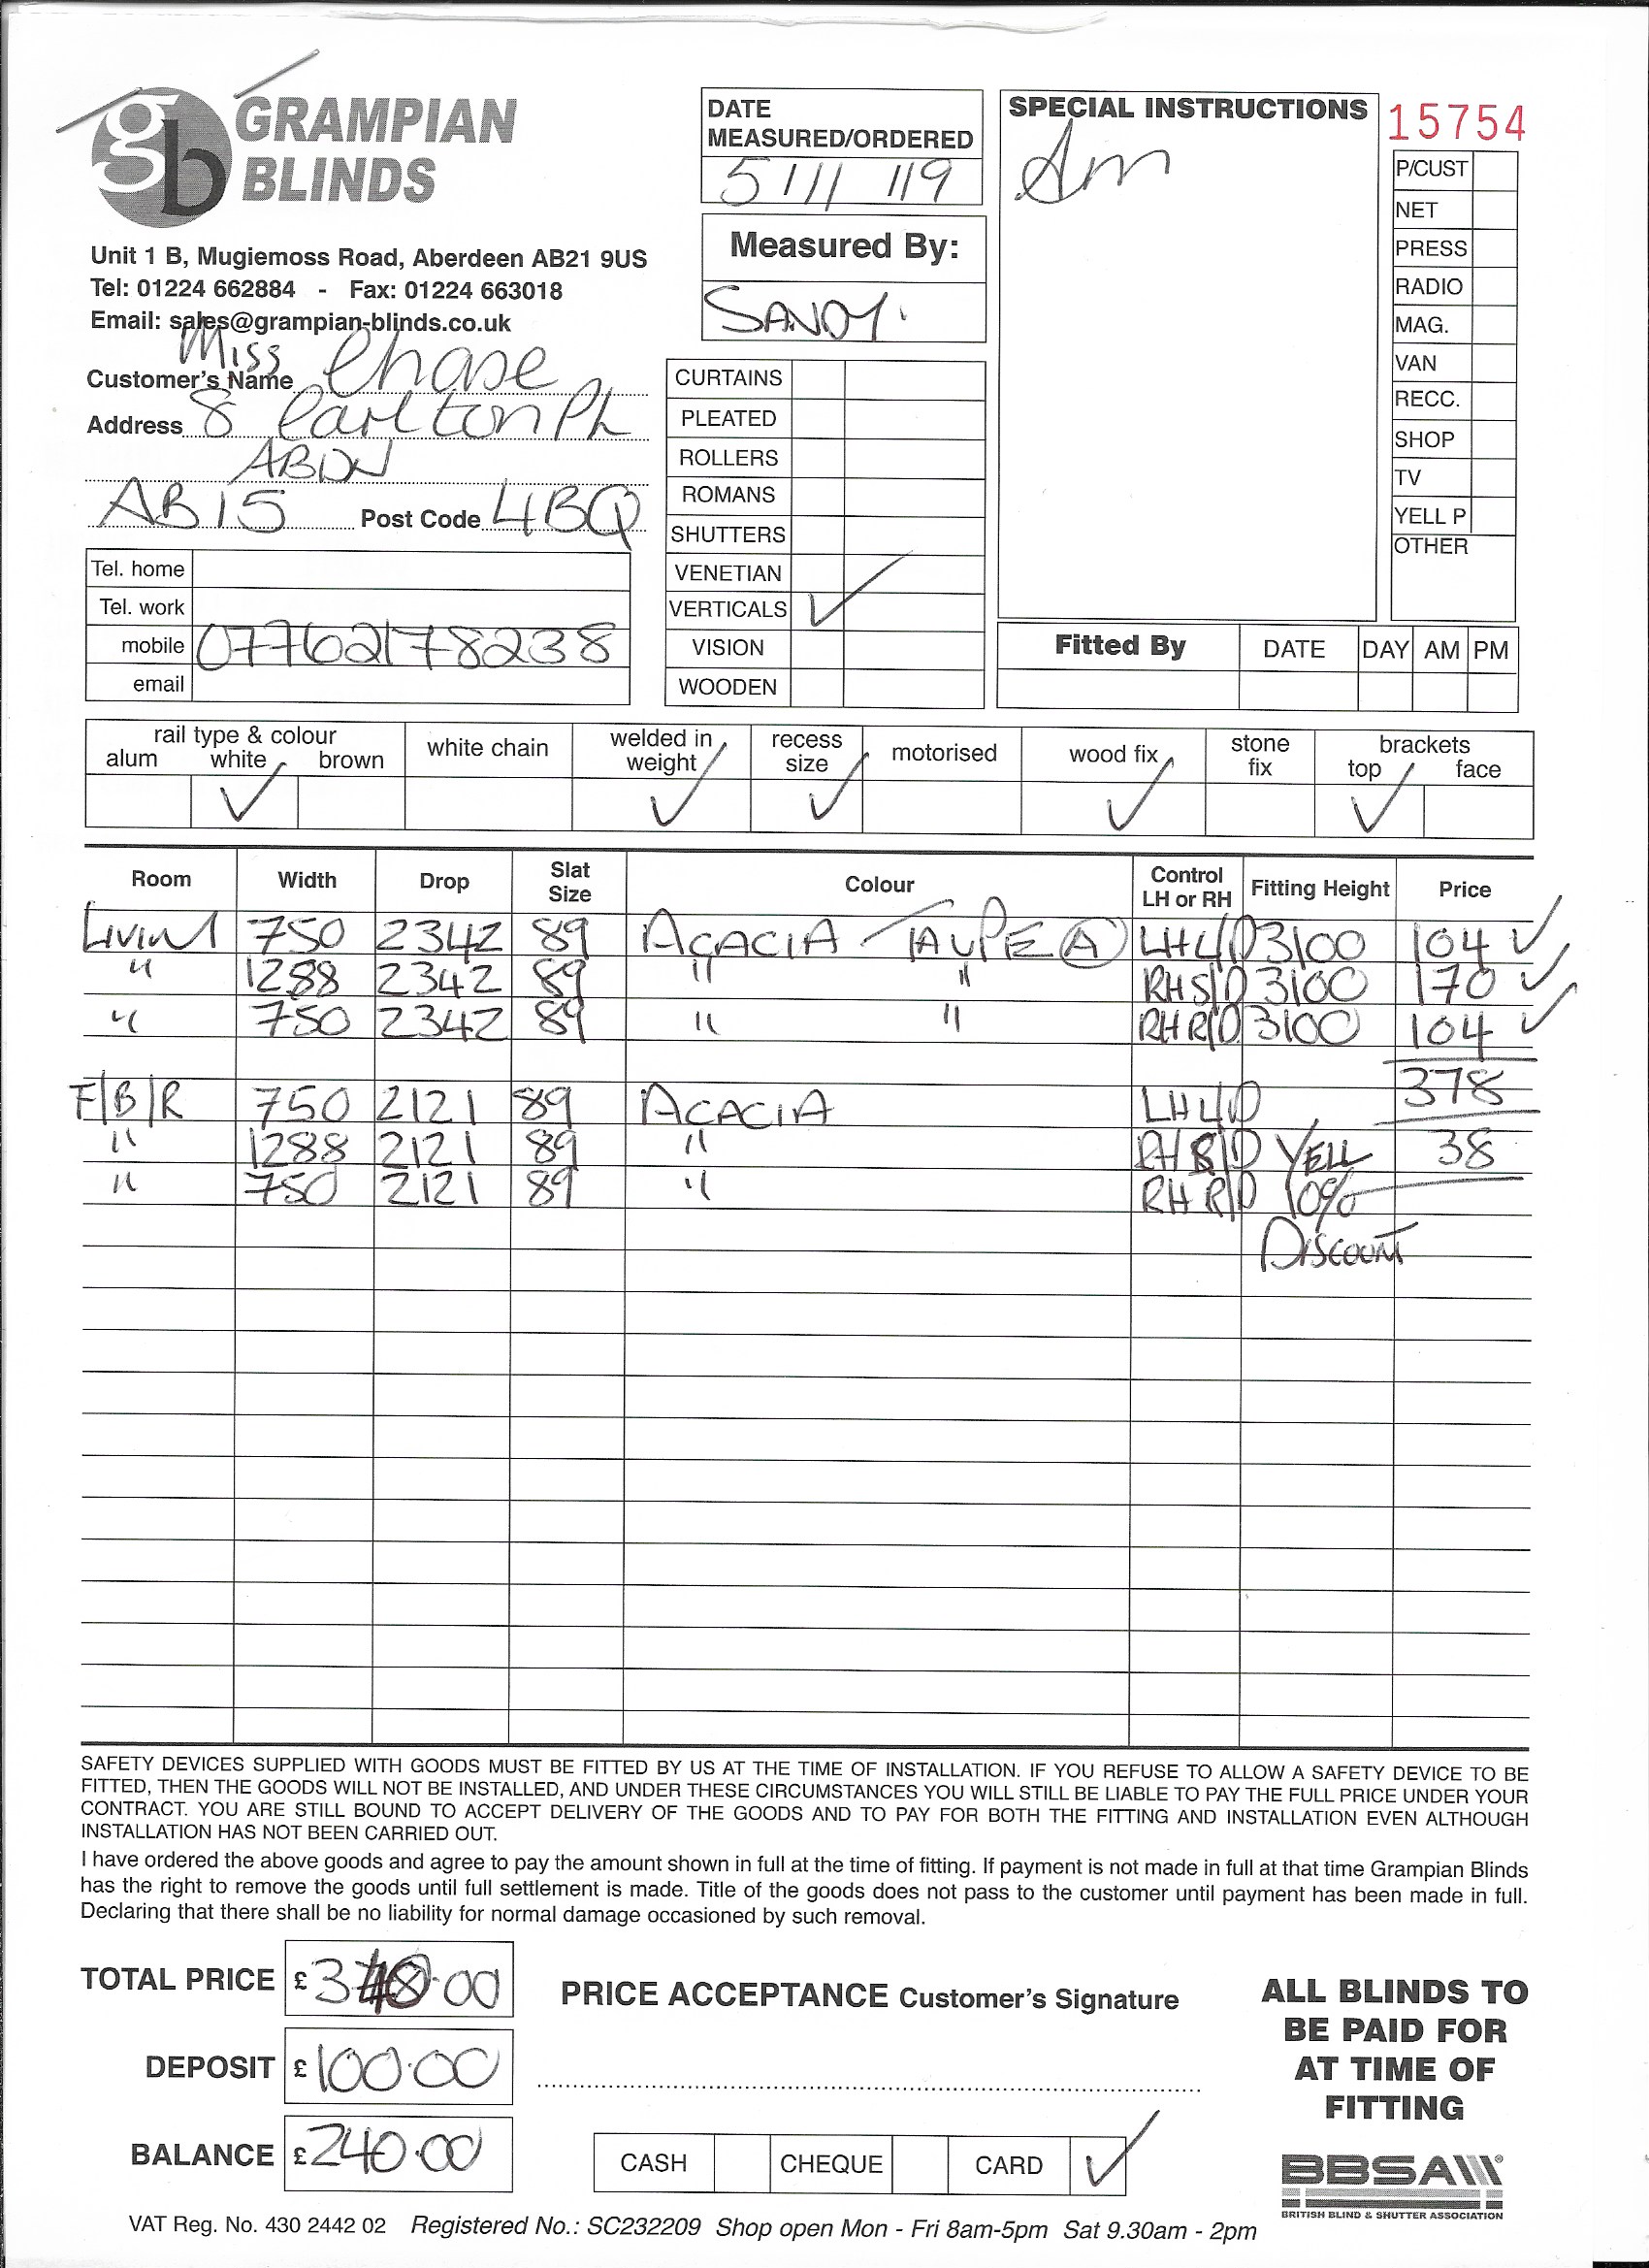 gb GRAMPIAN BLINDS
Unit 1 B, Mugiemoss Road, Aberdeen AB21 9US
Tel: 01224 662884 - Fax: 01224 663018
Email: sales@grampian-blinds.co.uk
Customer's Name Miss Chase
Address 8 Carlton PL
ABDN
AB15 Post Code 4BQ
Tel. home
Tel. work
mobile 07762178238
email
DATE
MEASURED/ORDERED
5/11/19
Measured By:
SANDY.
CURTAINS
PLEATED
ROLLERS
ROMANS
SHUTTERS
VENETIAN
VERTICALS ✓
VISION
WOODEN
SPECIAL INSTRUCTIONS
Am
15754
P/CUST
NET
PRESS
RADIO
MAG.
VAN
RECC.
SHOP
TV
YELL P
OTHER
Fitted By DATE DAY AM PM
rail type & colour
alum white ✓ brown
white chain
welded in weight ✓
recess size ✓
motorised
wood fix ✓
stone fix
brackets
top ✓ face
Room Width Drop Slat Size Colour Control LH or RH Fitting Height Price
LIVING 750 2342 89 ACACIA TAUPE A LH L/D 3100 104 ✓
" 1288 2342 89 " " RH S/D 3100 170 ✓
" 750 2342 89 " " RH R/D 3100 104 ✓
378
F/B/R 750 2121 89 ACACIA LH L/D
" 1288 2121 89 " RH S/D YELL 38
" 750 2121 89 " RH R/D 10%
DISCOUNT
SAFETY DEVICES SUPPLIED WITH GOODS MUST BE FITTED BY US AT THE TIME OF INSTALLATION. IF YOU REFUSE TO ALLOW A SAFETY DEVICE TO BE
FITTED, THEN THE GOODS WILL NOT BE INSTALLED, AND UNDER THESE CIRCUMSTANCES YOU WILL STILL BE LIABLE TO PAY THE FULL PRICE UNDER YOUR
CONTRACT. YOU ARE STILL BOUND TO ACCEPT DELIVERY OF THE GOODS AND TO PAY FOR BOTH THE FITTING AND INSTALLATION EVEN ALTHOUGH
INSTALLATION HAS NOT BEEN CARRIED OUT.
I have ordered the above goods and agree to pay the amount shown in full at the time of fitting. If payment is not made in full at that time Grampian Blinds
has the right to remove the goods until full settlement is made. Title of the goods does not pass to the customer until payment has been made in full.
Declaring that there shall be no liability for normal damage occasioned by such removal.
TOTAL PRICE £ 340.00
DEPOSIT £ 100.00
BALANCE £ 240.00
PRICE ACCEPTANCE Customer's Signature
CASH CHEQUE CARD ✓
ALL BLINDS TO
BE PAID FOR
AT TIME OF
FITTING
BBSA
BRITISH BLIND & SHUTTER ASSOCIATION
VAT Reg. No. 430 2442 02 Registered No.: SC232209 Shop open Mon - Fri 8am-5pm Sat 9.30am - 2pm